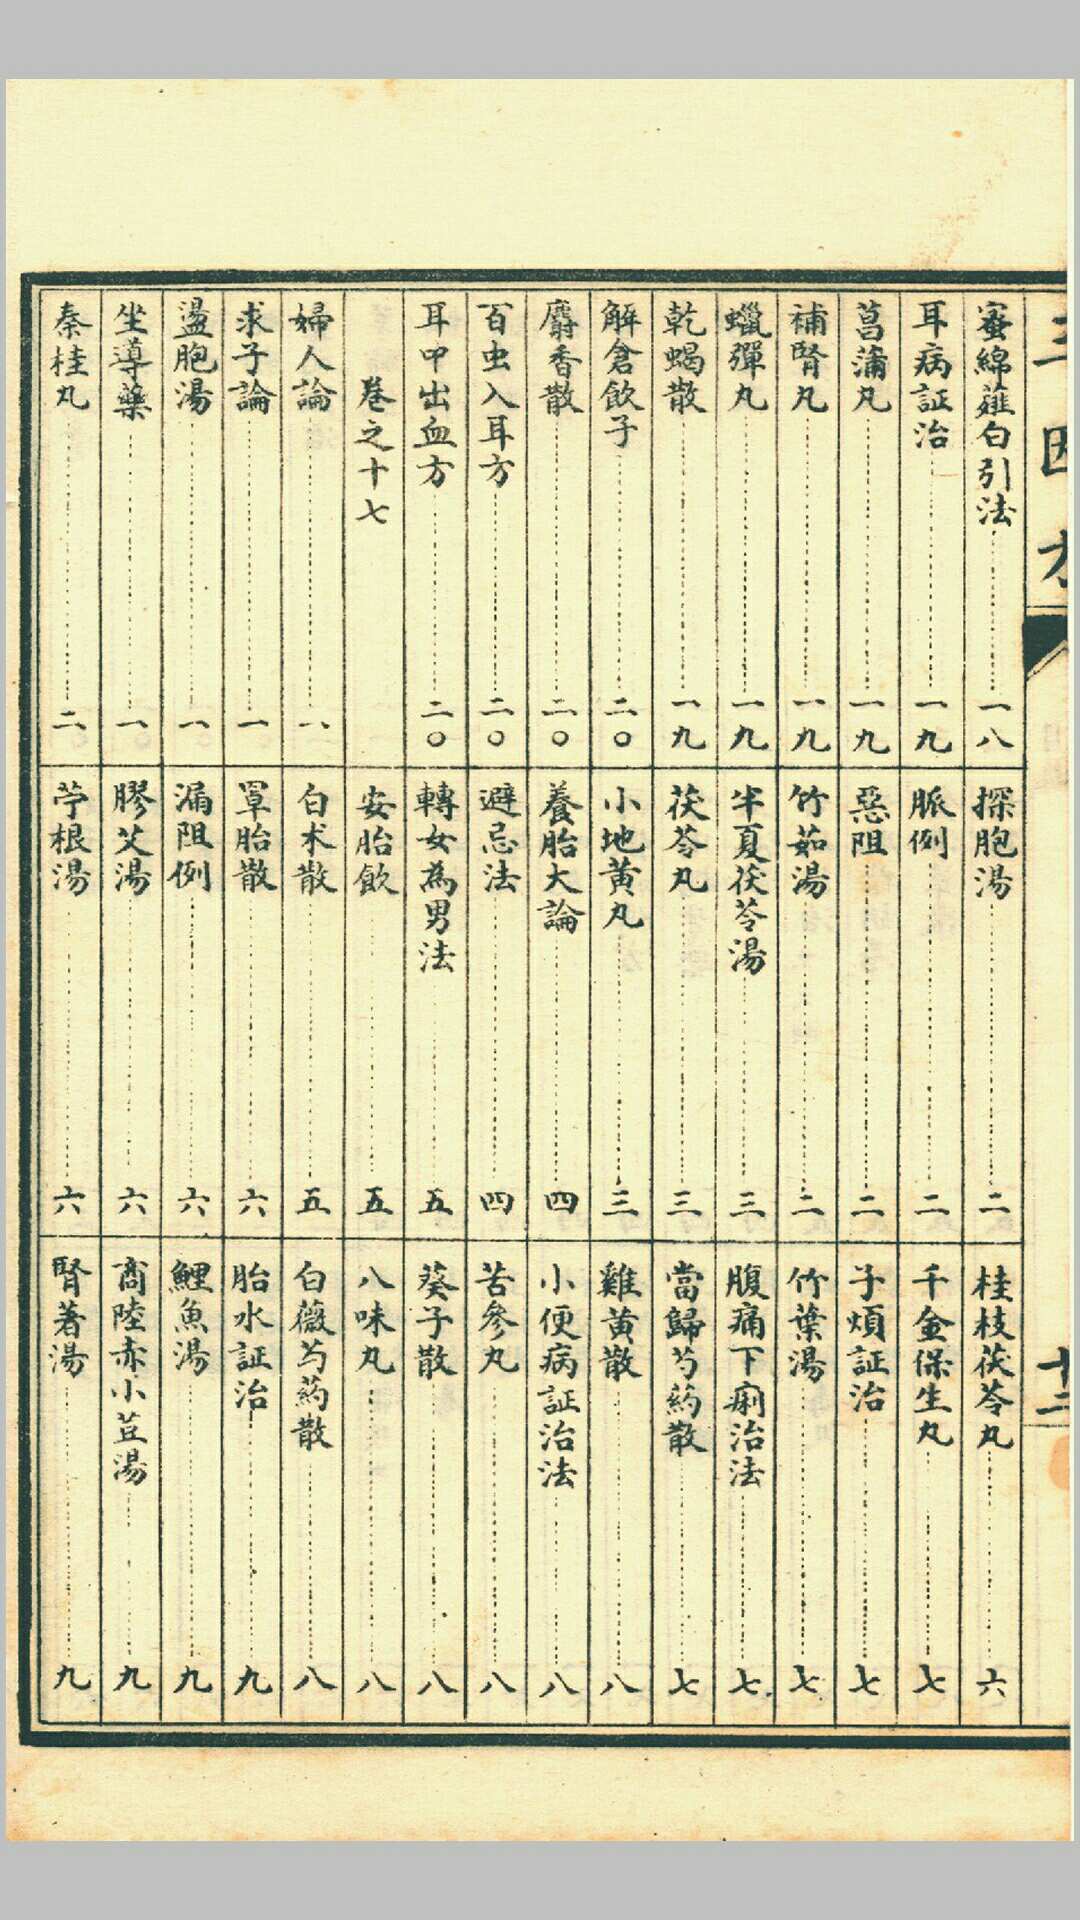 三因方
十二
蜜綿薤白引法 一八
耳病証治 一九
菖蒲丸 一九
補腎丸 一九
蠟彈丸 一九
乾蝎散 一九
解倉飲子 二〇
麝香散 二〇
百虫入耳方 二〇
耳甲出血方 二〇
卷之十七
婦人論 一
求子論 一
盪胞湯 一
坐導藥 一
秦桂丸 二
探胞湯 二
脈例 二
惡阻 二
竹茹湯 二
半夏茯苓湯 三
茯苓丸 三
小地黄丸 三
養胎大論 四
避忌法 四
轉女為男法 五
安胎飲 五
白术散 五
罩胎散 六
漏阻例 六
膠艾湯 六
苧根湯 六
桂枝茯苓丸 六
千金保生丸 七
子煩証治 七
竹葉湯 七
腹痛下痢治法 七
當歸芍葯散 七
雞黄散 八
小便病証治法 八
苦參丸 八
葵子散 八
八味丸 八
白薇芍葯散 八
胎水証治 九
鯉魚湯 九
商陸赤小荳湯 九
腎著湯 九